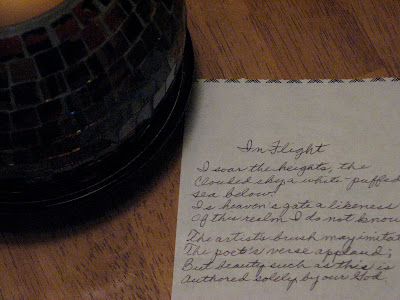 In Flight
I soar the heights, the
Clouded sky a white-puffed
sea below.
Is heaven's gate a likeness
Of this realm I do not know
The artist's brush may imitat
The poet's verse applaud;
But beauty such as this is
Authored solely by our God.